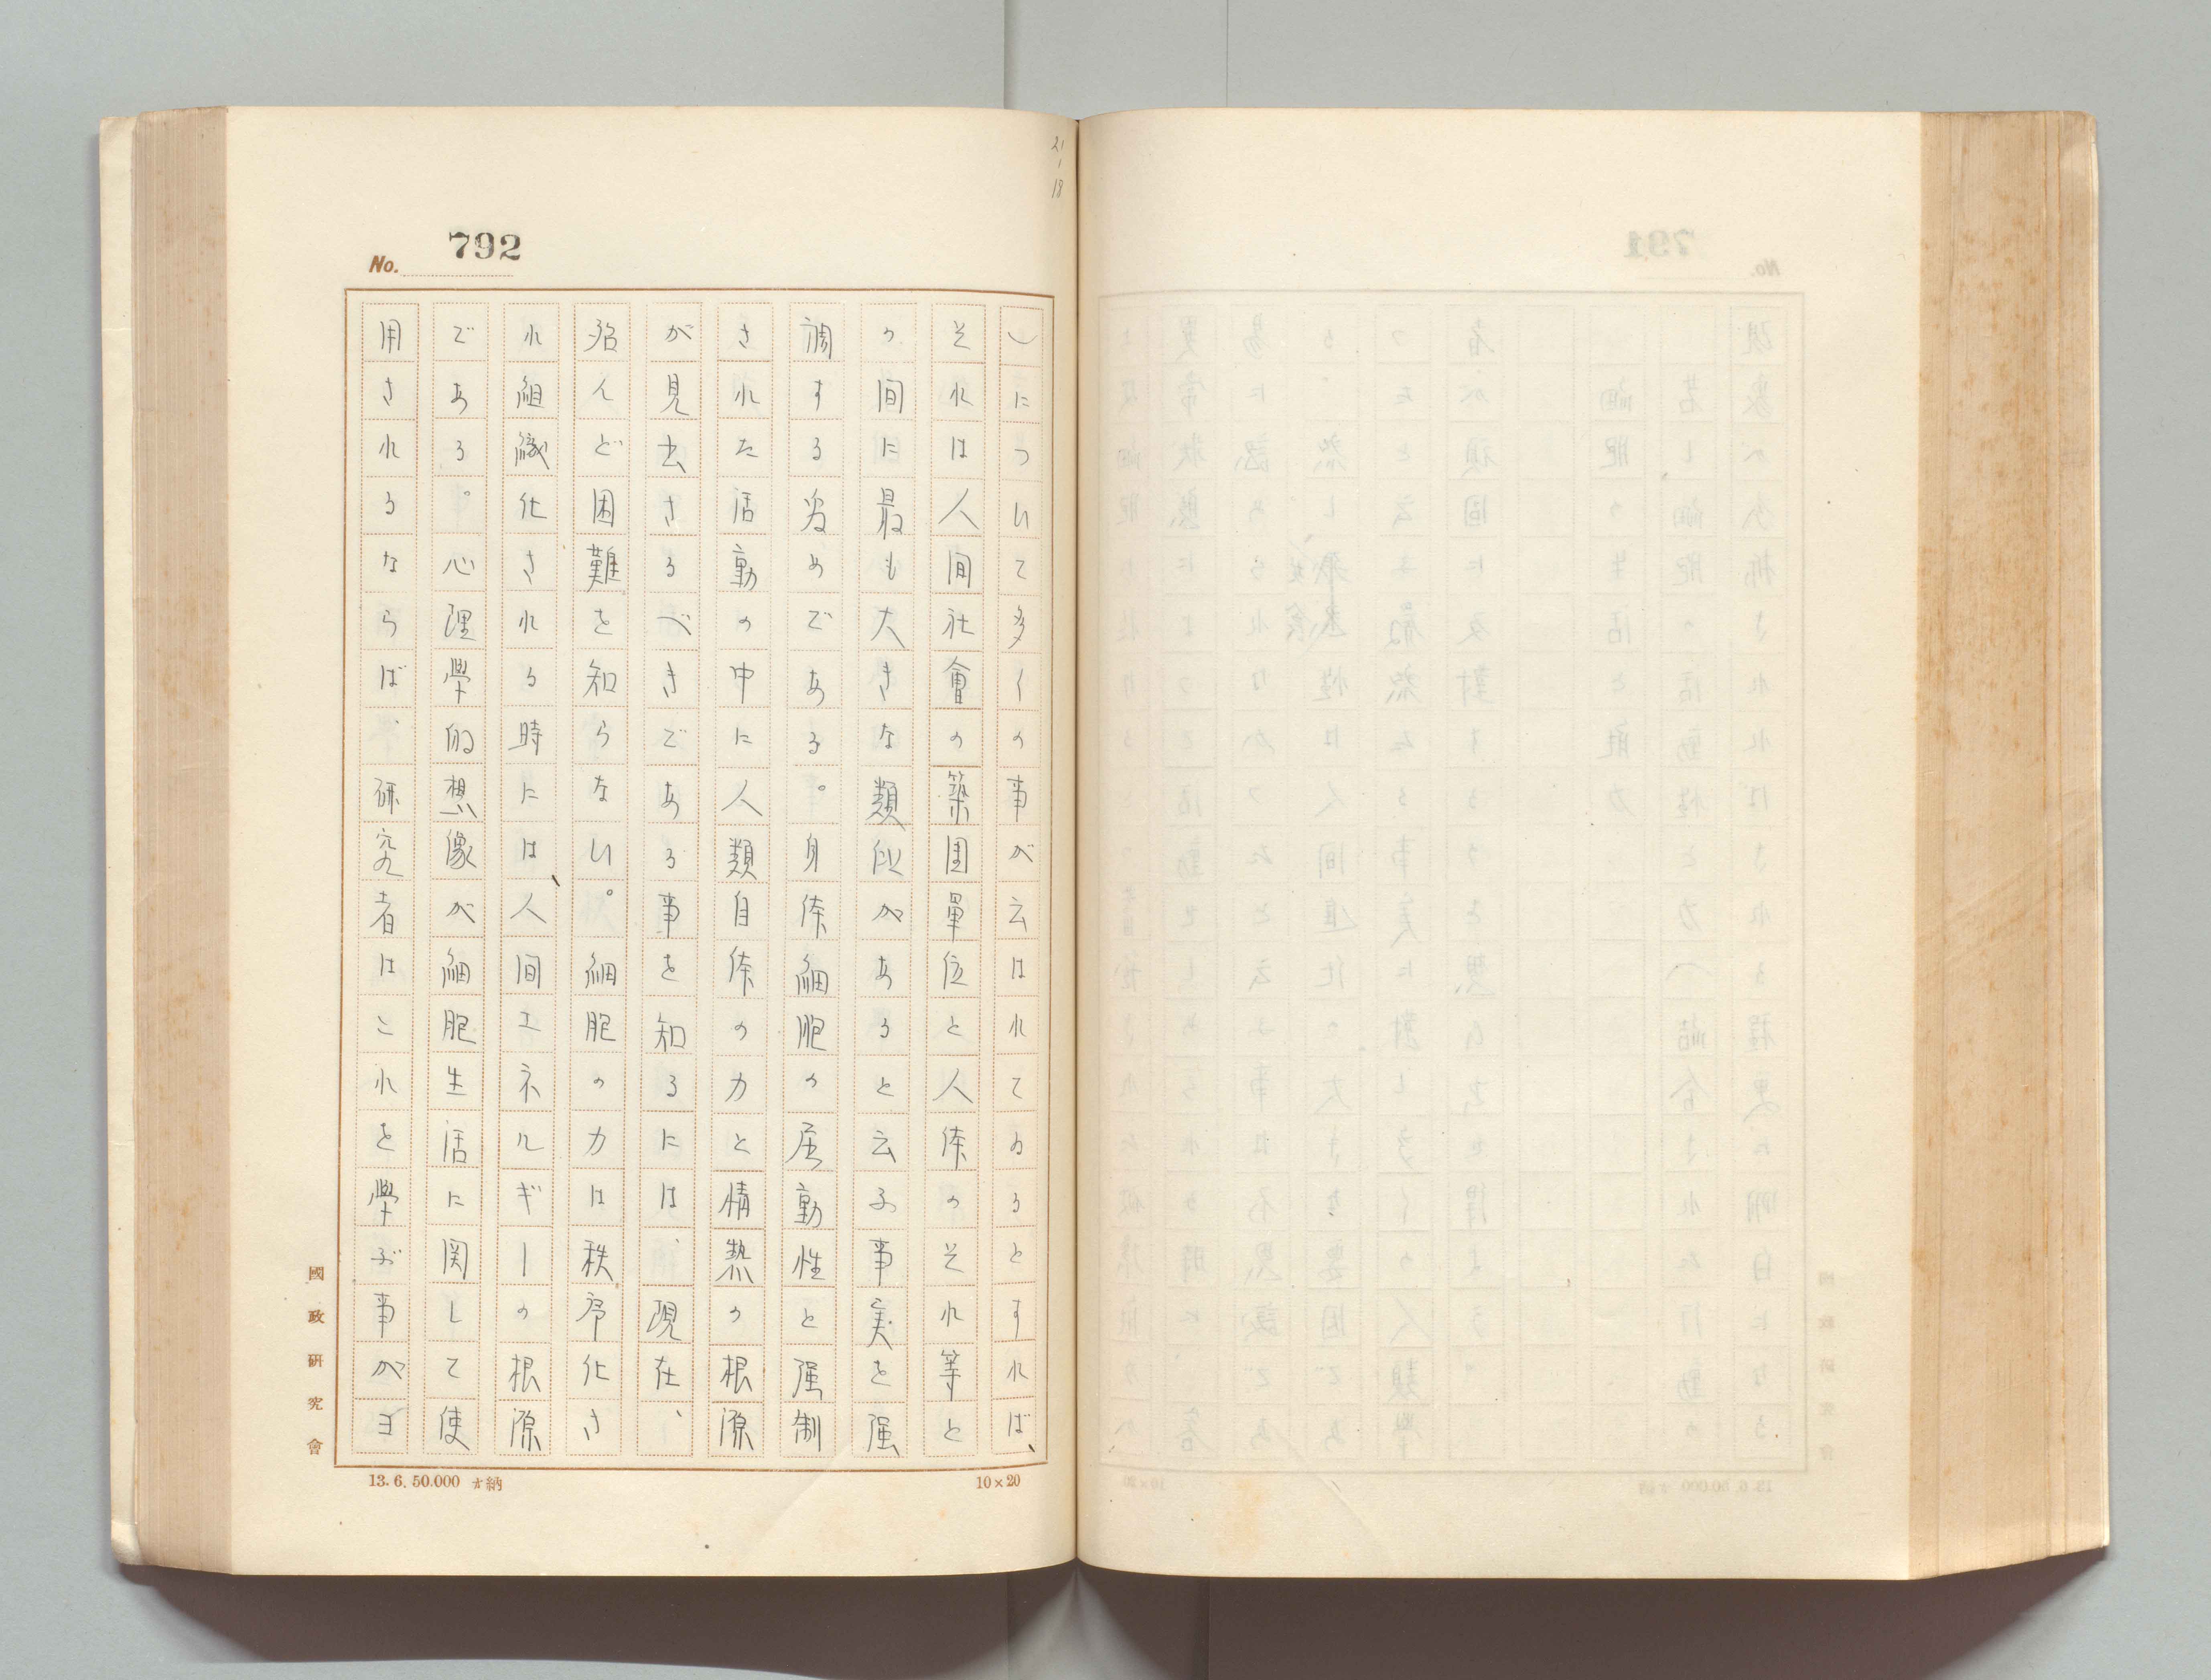 792
No.
21
1
18
)について多くの事が云はれてゐるとすれば、
それは人間社會の築団單位と人体のそれ等と
の間に最も大きな類似があると云ふ事実を强
調する為めである。身体細胞の動性と强制
された活動の中に人類自体の力と情熱の根源
が見出さるべきである事を知るには、現在、
殆んど困難を知らない。細胞の力は秩序化さ
れ組織化される時には、人間エネルギーの根源
である。心理學的想像が細胞生活に関して使
用されるならば、研究者はこれを學ぶ事がヨ
國政硏究會
13. 6. 50.000 才納
10×20